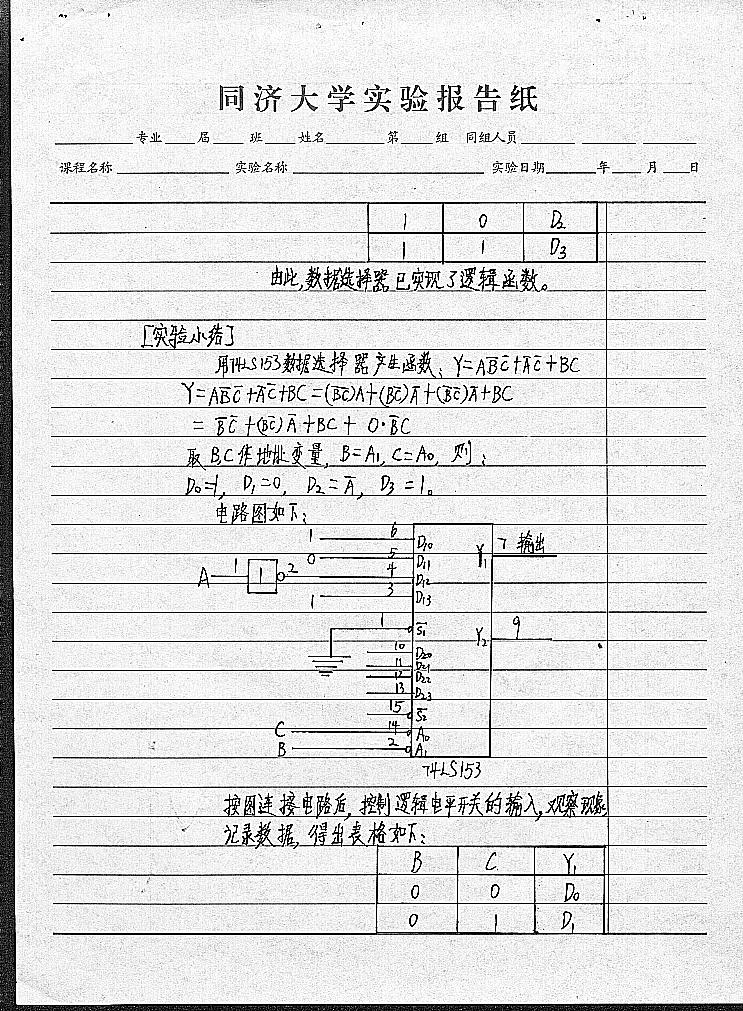 同济大学实验报告纸
专业 届 班 姓名 第 组 同组人员
课程名称 实验名称 实验日期 年 月 日
1 0 D₂
1 1 D₃
由此,数据选择器已实现了逻辑函数。
[实验小结]
用74LS153数据选择器产生函数、Y=AB̅C̅+A̅C̅+BC
Y=AB̅C̅+A̅C̅+BC=(B̅C̅)A+(B̅C̅)A̅+(BC̅)A̅+BC
= B̅C̅+(BC̅)A̅+BC+0·B̅C
取B,C作地址变量,B=A₁,C=A₀,则;
D₀=1, D₁=0, D₂=A̅, D₃=1。
电路图如下:
1 6 D₁₀ 7 输出
0 5 D₁₁ Y₁
A 1 1 2 4 D₁₂
1 3 D₁₃
1 S̅₁ Y₂ 9
10 D₂₀
11 D₂₁
12 D₂₂
13 D₂₃
15 S̅₂
C 14 A₀
B 2 A₁
74LS153
按图连接电路后,控制逻辑电平开关的输入,观察现象
记录数据,得出表格如下:
B C Y₁
0 0 D₀
0 1 D₁